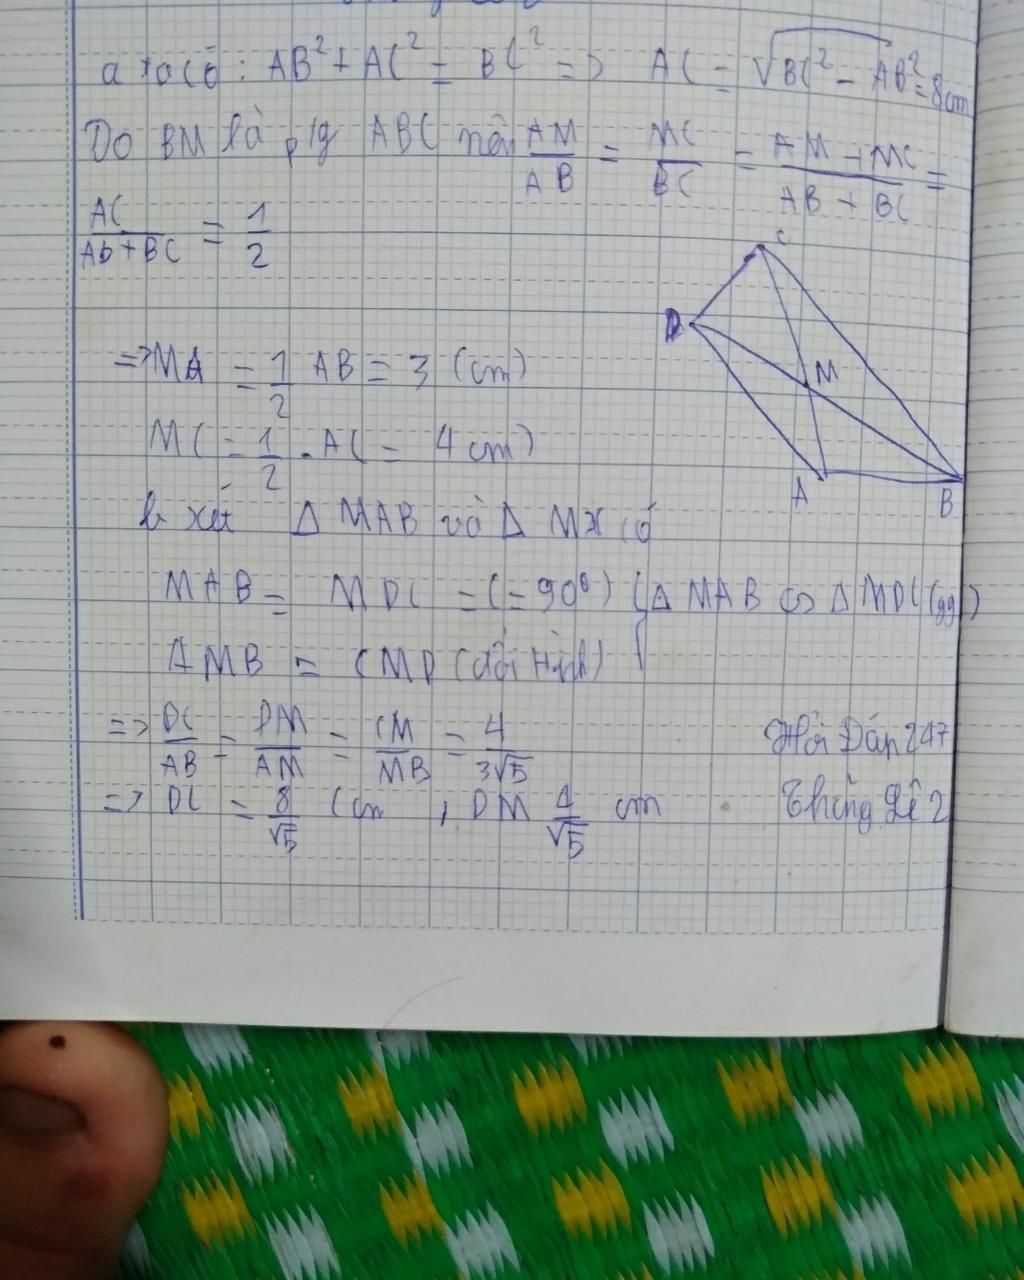 a ta có : AB² + AC² = BC² => AC = √BC² - AB² = 8cm
Do BM là p/g ABC nên AM/AB = MC/BC = AM + MC/AB + BC =
AC/Ab+BC = 1/2
C
D
M
A
B
=> MA = 1/2 AB = 3 (cm)
MC = 1/2 . AC = 4 cm)
b xét Δ MAB và Δ MDC có
MAB = MDC = (= 90⁰) Δ MAB ∽ Δ MDC (gg)
AMB = CMD (đối đỉnh)
=> DC/AB = DM/AM = CM/MB = 4/3√5
=> DC = 8/√5 (cm , DM 4/√5 cm
Hỏi Đáp 247